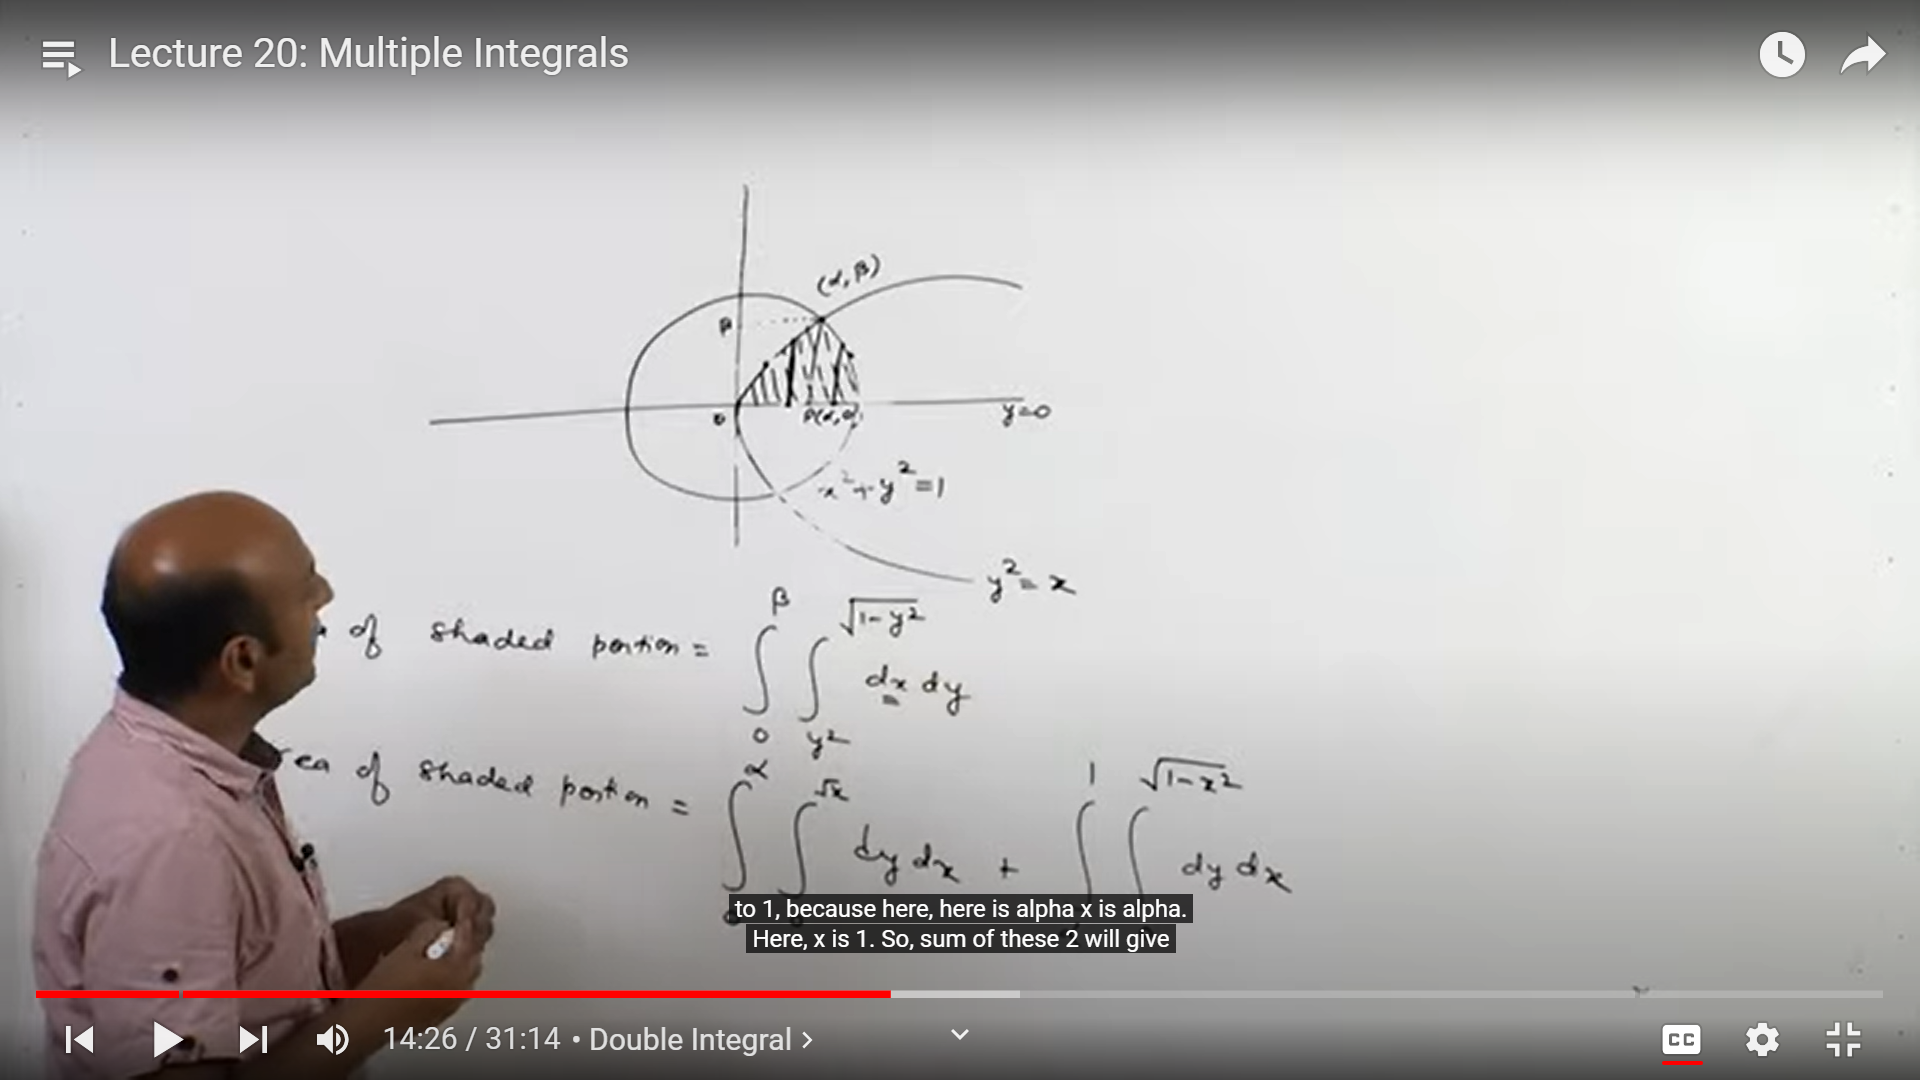 Lecture 20: Multiple Integrals
(α, β)
β
0
P(α, 0)
y=0
x²+y²=1
y²=x
of shaded portion = ∫₀^β ∫_{y²}^{√(1-y²)} dx dy
rea of shaded portion = ∫₀^α ∫₀^{√x} dy dx + ∫^1 ∫^{√(1-x²)} dy dx
to 1, because here, here is alpha x is alpha.
Here, x is 1. So, sum of these 2 will give
14:26 / 31:14 • Double Integral >
CC